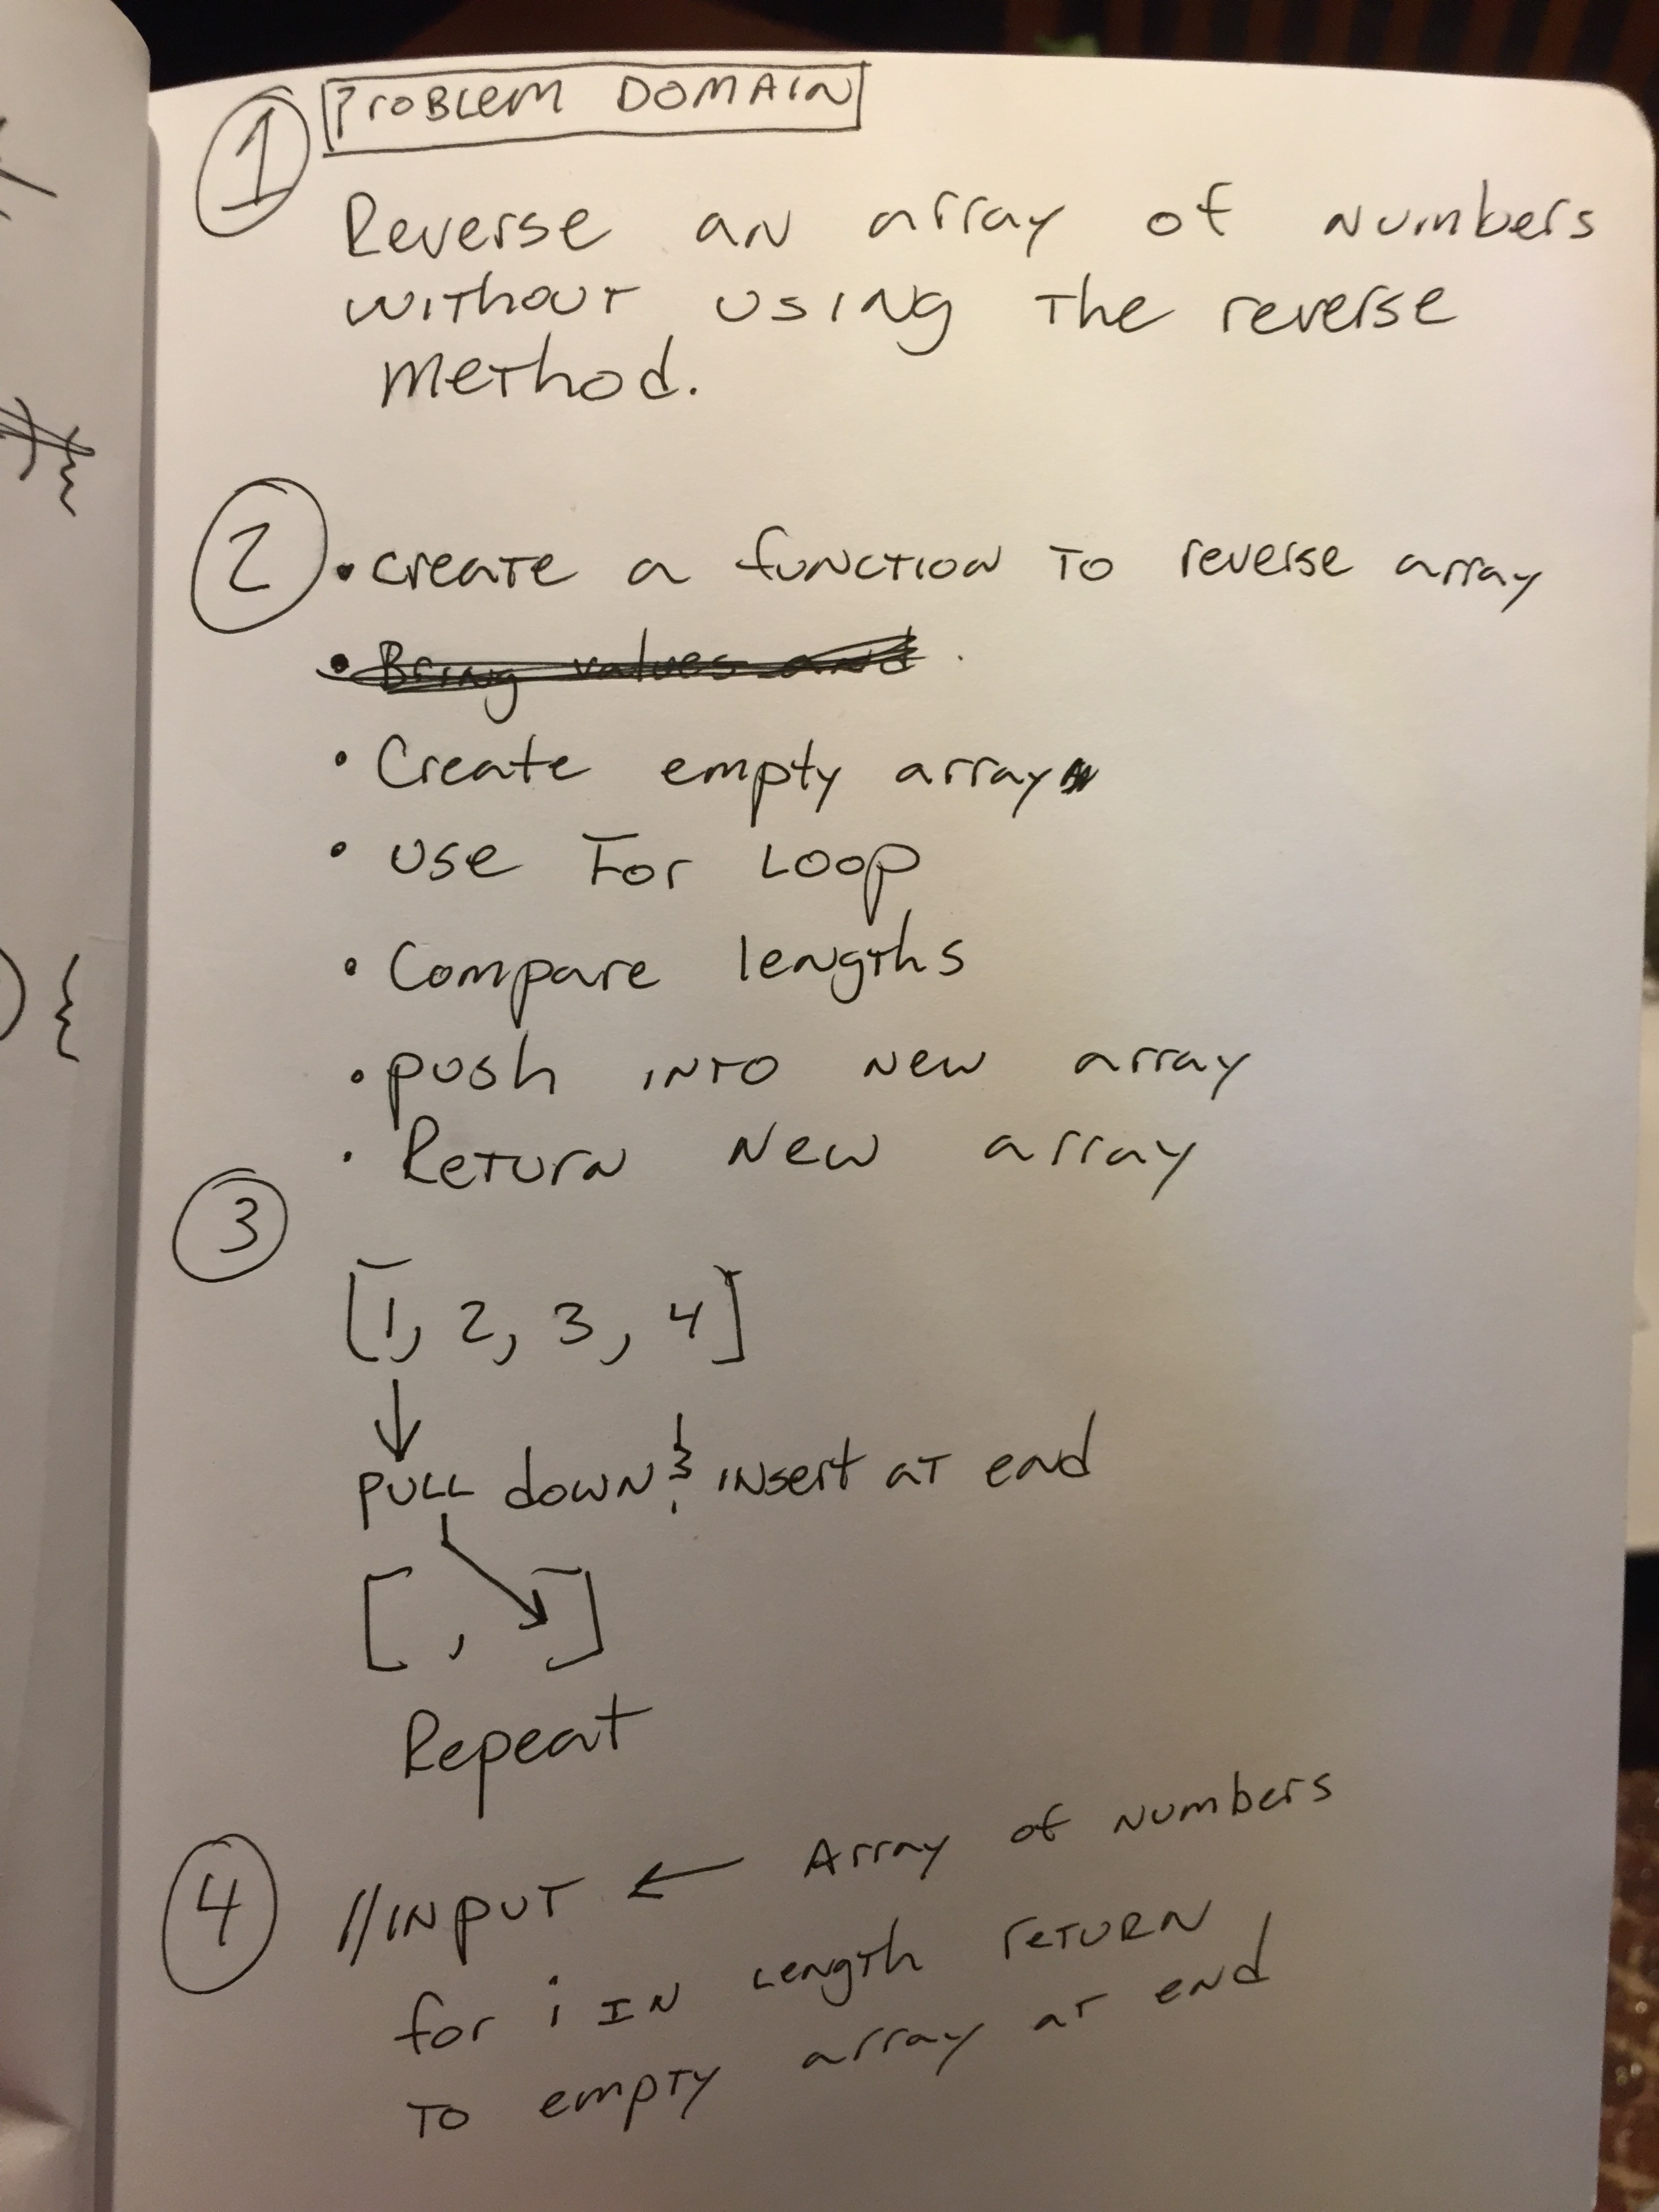 ① PROBLEM DOMAIN
Reverse an array of numbers
without using the reverse
method.
② • create a function to reverse array
• Bring values and
• Create empty array
• use For Loop
• Compare lengths
• push into new array
• Return new array
③
[1, 2, 3, 4]
↓
PULL down & insert at end
[ , ]
Repeat
④ //INPUT ← Array of numbers
for i IN Length return
to empty array at end